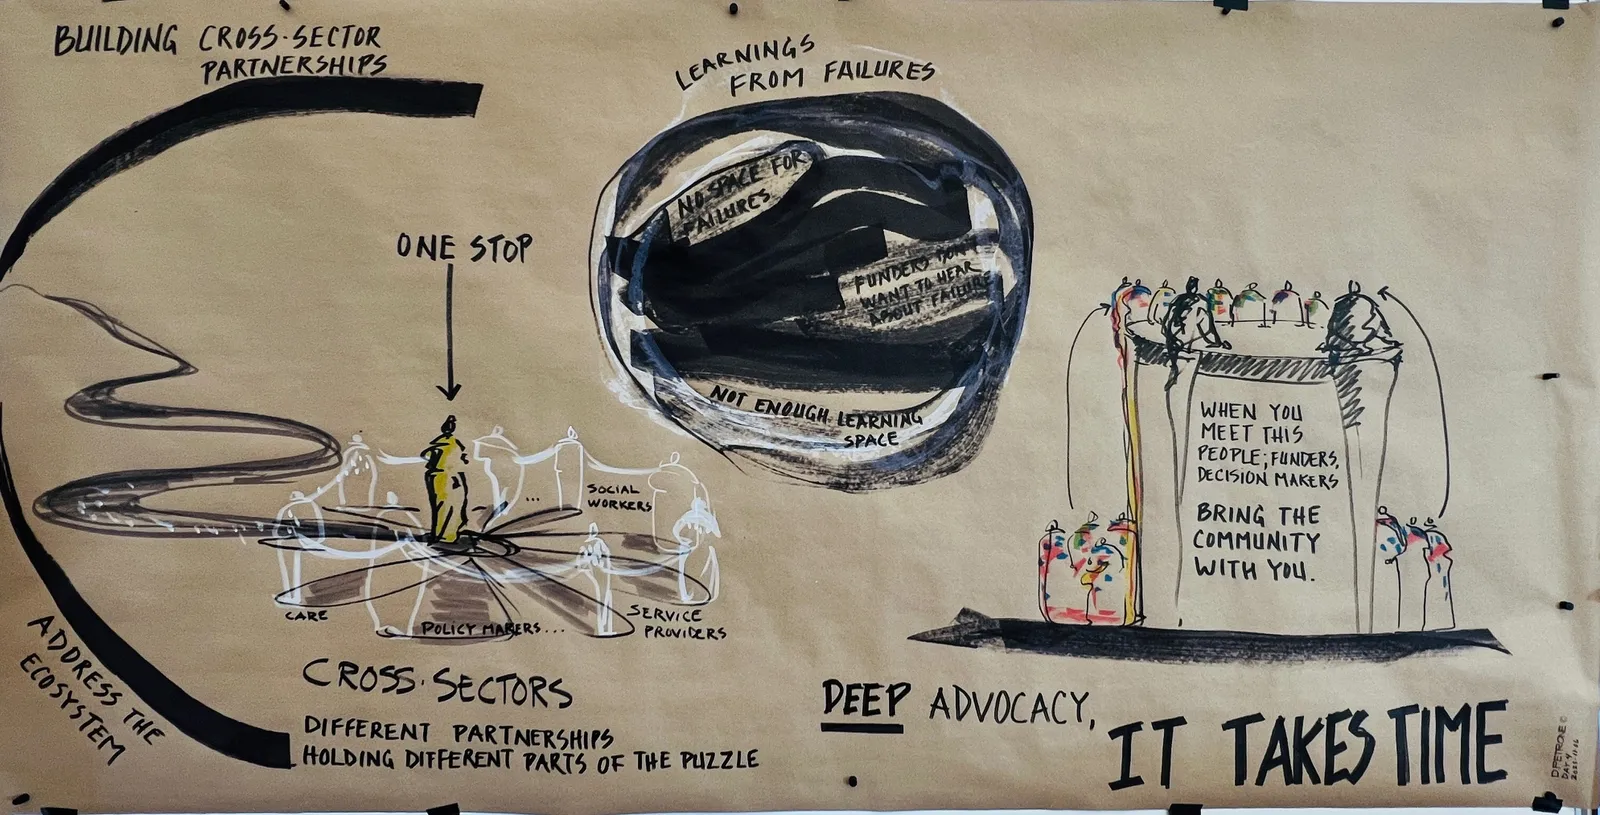 BUILDING CROSS-SECTOR
PARTNERSHIPS
ADDRESS THE
ECOSYSTEM
ONE STOP
...
SOCIAL
WORKERS
CARE
POLICY MAKERS...
SERVICE
PROVIDERS
CROSS-SECTORS
DIFFERENT PARTNERSHIPS
HOLDING DIFFERENT PARTS OF THE PUZZLE
LEARNINGS
FROM FAILURES
NO SPACE FOR
FAILURES
FUNDERS DON'T
WANT TO HEAR
ABOUT FAILURE
NOT ENOUGH LEARNING
SPACE
WHEN YOU
MEET THIS
PEOPLE; FUNDERS,
DECISION MAKERS
BRING THE
COMMUNITY
WITH YOU.
DEEP ADVOCACY,
IT TAKES TIME
DAY 4